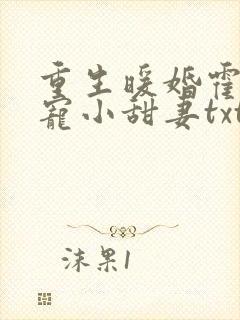 重生暖婚霍
宠小甜妻txt
沫果1